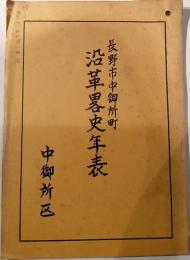 長野市中御所町
沿革畧史年表
中御所区